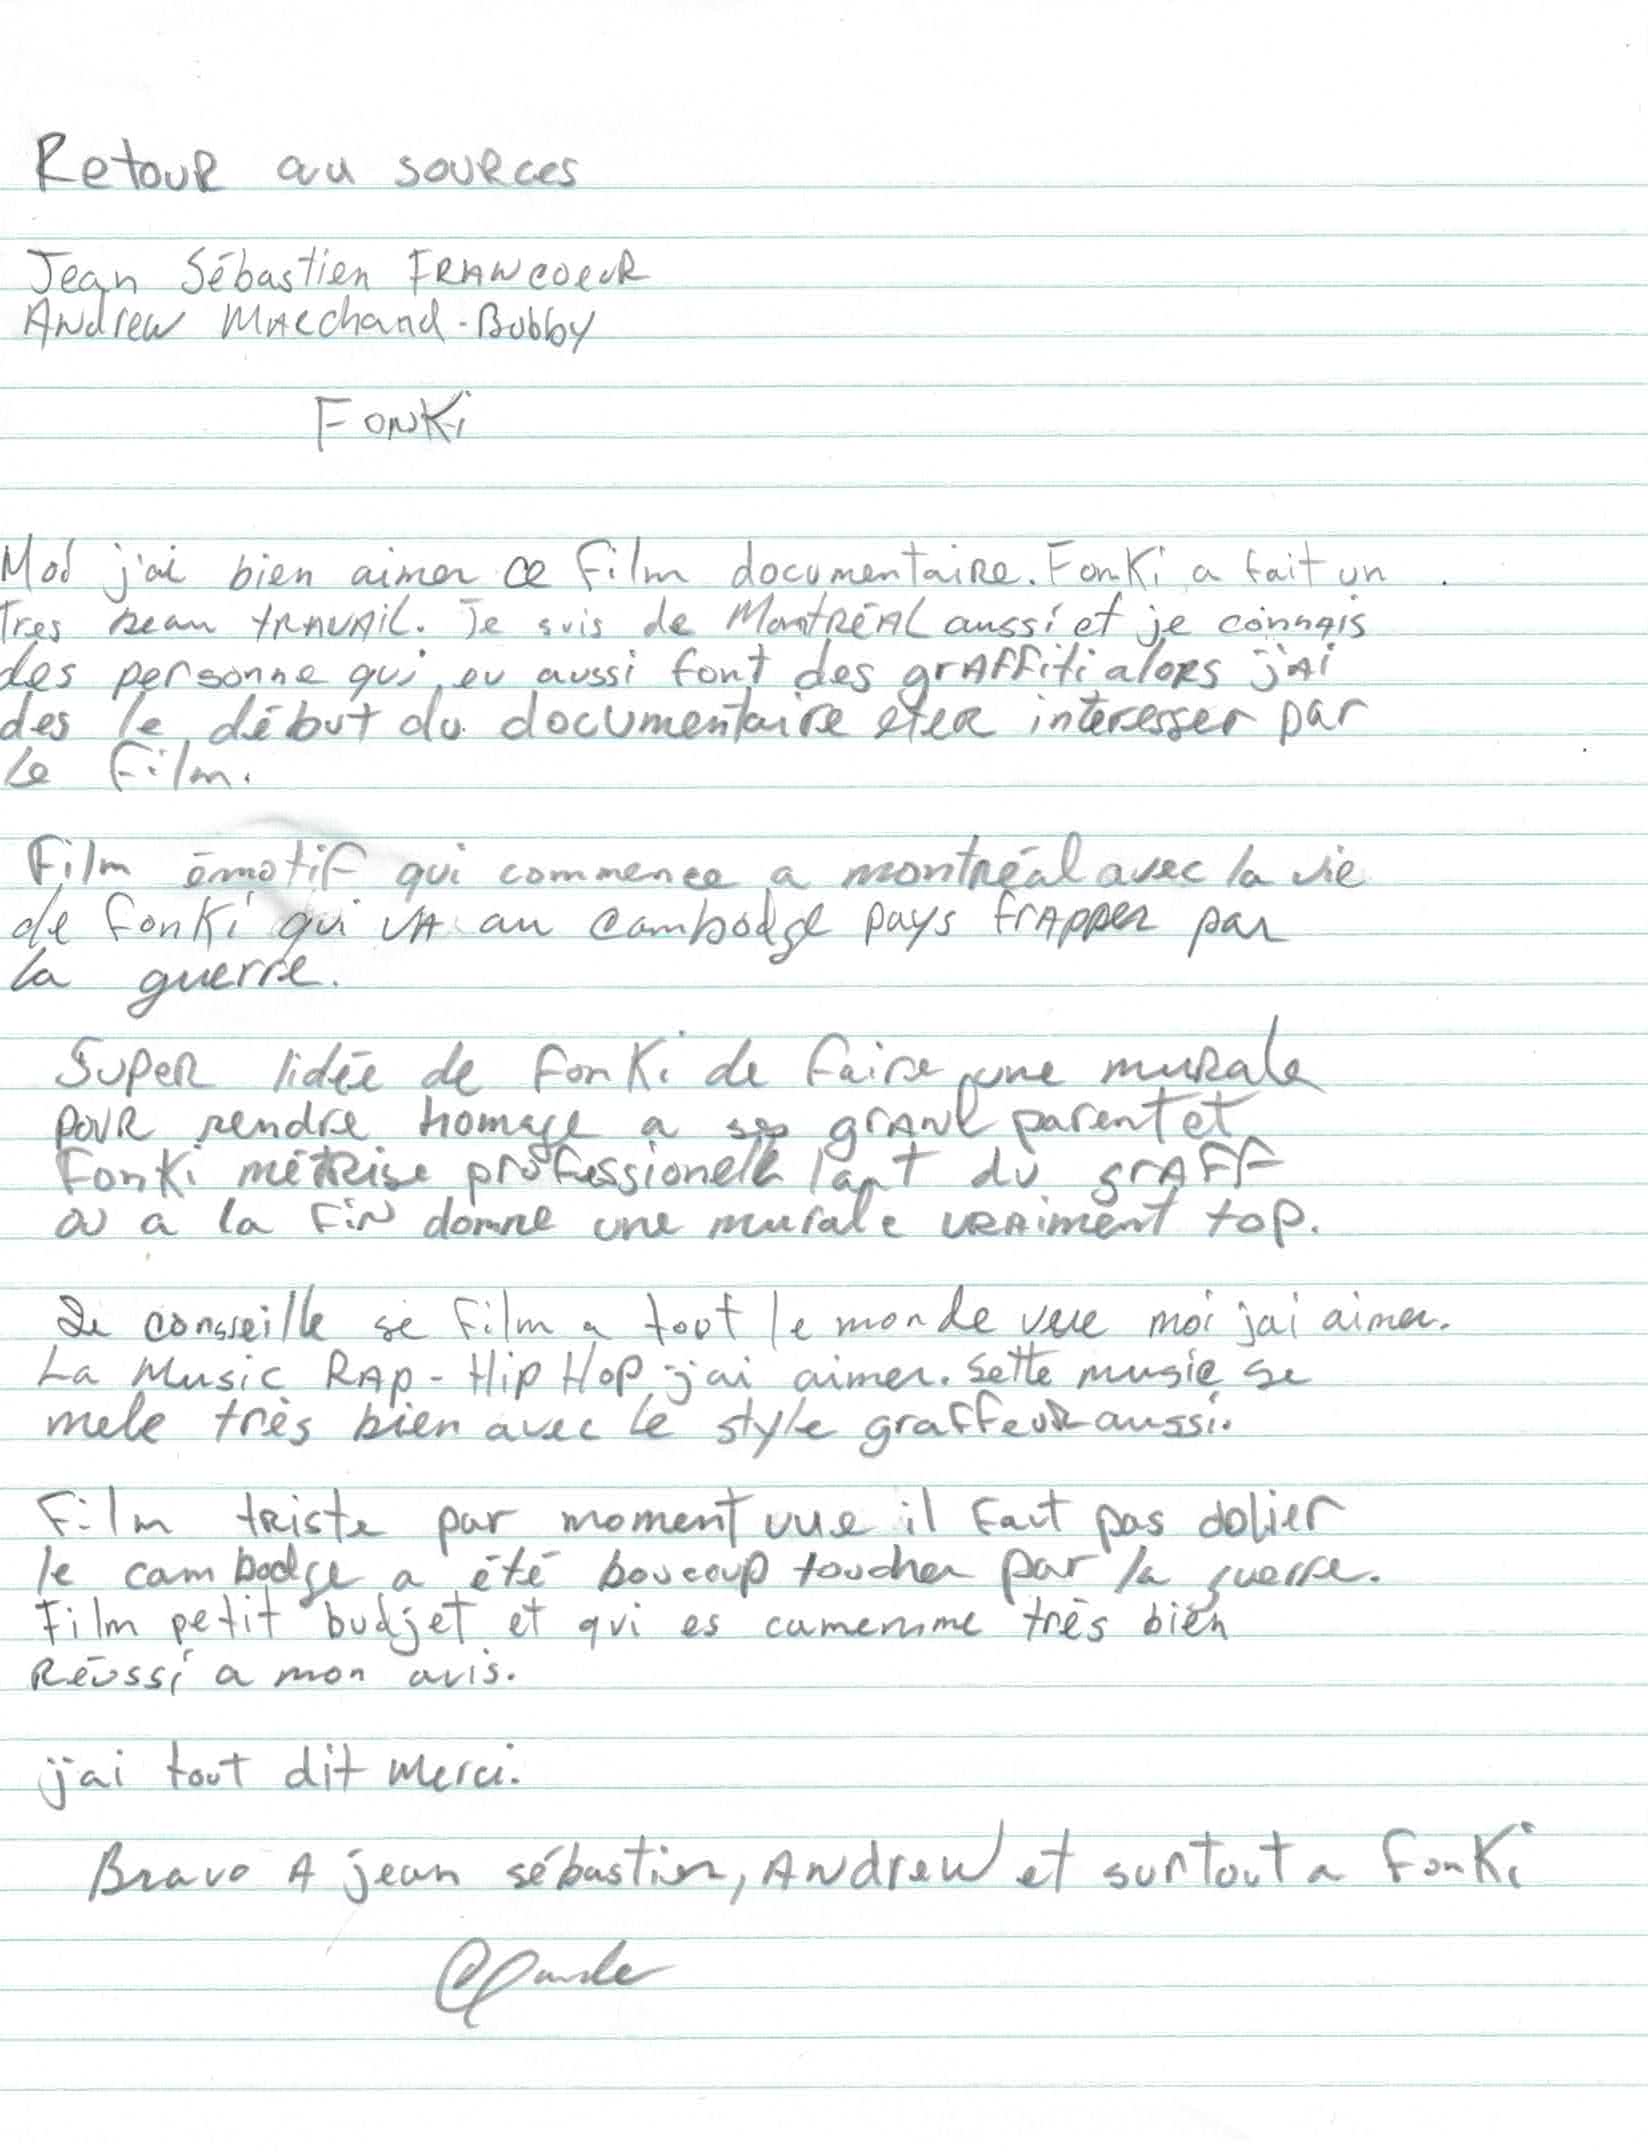 Retour au sources
Jean Sébastien FRANCOEUR
Andrew Marchand-Bobby
Fonki
Moi j'ai bien aimer ce film documentaire. Fonki a fait un
Tres beau travail. Je suis de Montréal aussi et je connais
des personne qui eu aussi font des graffiti alors j'ai
des le début du documentaire eter intéresser par
le film.
Film émotif qui commence a montréal avec la vie
de fonki qui va au cambodge pays frapper par
la guerre.
Super lidée de fonki de faire une murale
pour rendre homage a ses grand parent et
Fonki métrise professionelle lart du graff
ou a la fin donne une murale vraiment top.
Je conseille se film a tout le monde vue moi jai aimer.
La Music RAP-Hip Hop j'ai aimer. Sette music se
mele très bien avec le style graffeur aussi.
Film triste par moment vue il faut pas dolier
le cambodge a été boucoup toucher par la guerre.
Film petit budjet et qui es camemme très bien
Réussi a mon avis.
j'ai tout dit merci.
Bravo A jean sébastien, Andrew et surtout a fonki